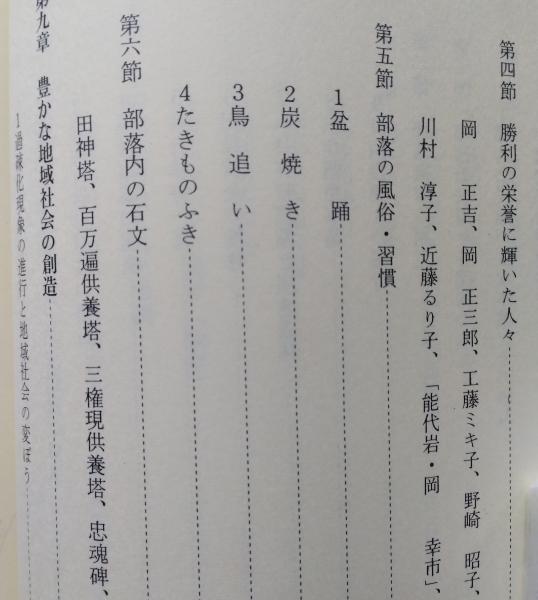 第四節　勝利の栄誉に輝いた人々
岡　正吉、岡　正三郎、工藤ミキ子、野崎　昭子、
川村　淳子、近藤るり子、「能代岩・岡　幸市」、
第五節　部落の風俗・習慣
1 盆踊
2 炭焼き
3 鳥追い
4 たきものふき
第六節　部落内の石文
田神塔、百万遍供養塔、三権現供養塔、忠魂碑、
第九章　豊かな地域社会の創造
1 過疎化現象の進行と地域社会の変ぼう